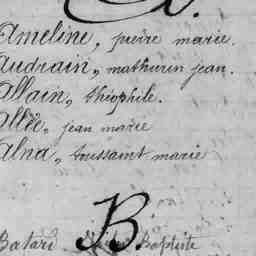 A.
Ameline, pierre marie.
Audrain, mathurin jean.
Allain, théophile.
jean marie
Alna, toussaint marie
B.
Batard Baptiste